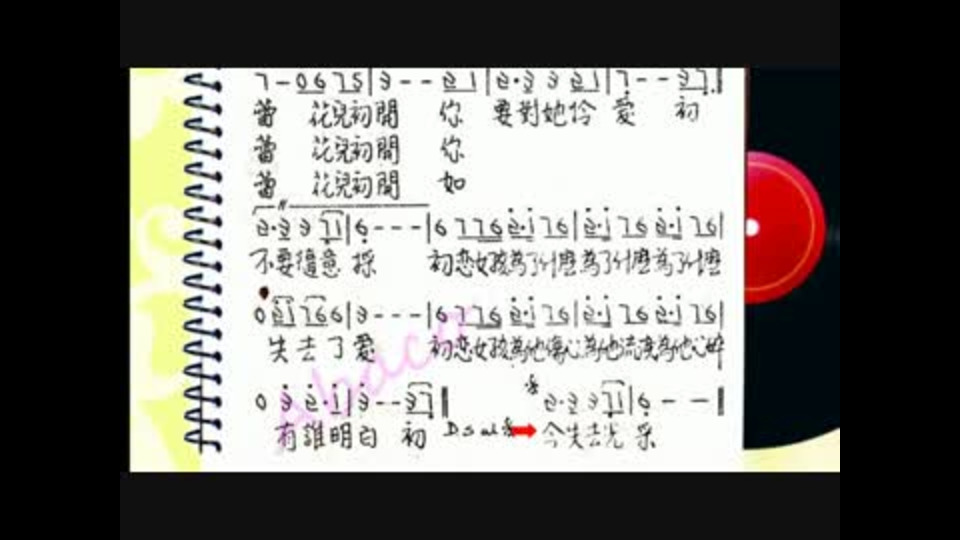 7 - 0 6 7 5 | 3 - - 2 1 | 2 · 3 3 2 1 | 7 - - 3 7 ‖
蕾 花兒初開 你 要對她怜愛 初
蕾 花兒初開 你
蕾 花兒初開 如
2 · 3 3 7 1 | 6 - - - | 6 7 7 6 2 · 1 7 6 | 2 · 1 7 6 2 · 1 7 6 |
不要隨意採 初恋女孩為了什麼為了什麼為了什麼
0 2 1 7 6 6 | 3 - - - | 6 7 7 6 2 · 1 7 6 | 2 · 1 7 6 2 · 1 7 6 |
失去了愛 初恋女孩為他傷心為他流淚為他心碎
0 3 2 · 1 | 3 - - 3 7 ‖ 2 · 3 3 7 1 | 6 - - ‖
有誰明白 初 D.S al 今失去光采
Abaco